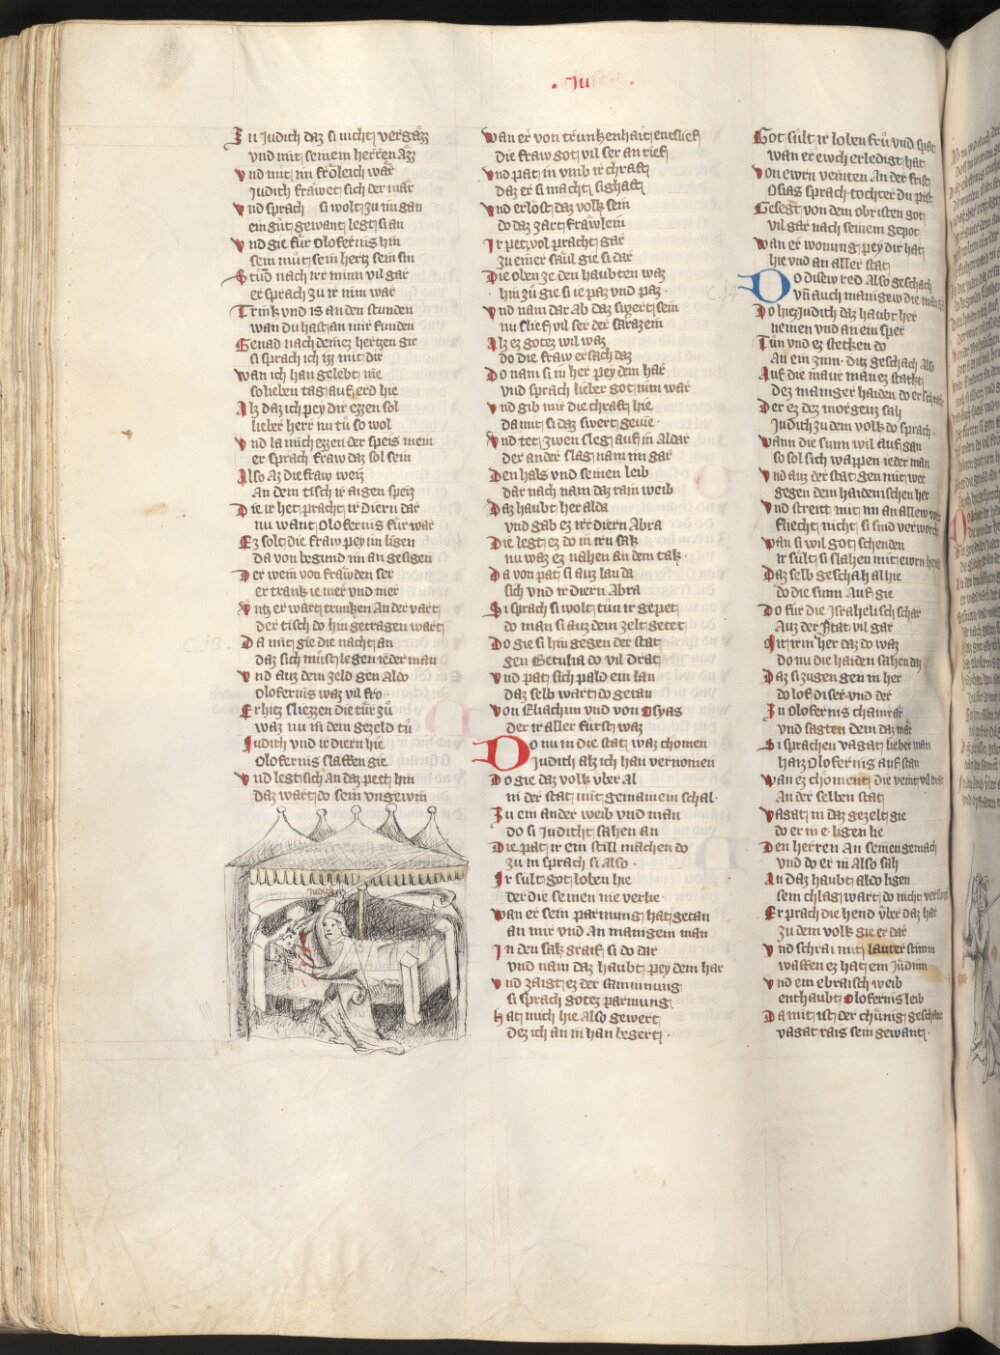 · Ju ·
Zu Judith daz si nicht vergazz
vnd mit seinem herren azz
vnd mit im frölich wär
Judith fräwet sich der mär
vnd sprach si wolt zu im gan
ein gůt gewant legt si an
vnd gie für Olofernis hin
sein můt sein hertz sein sin
Stůd nach irr minn vil gar
er sprach zu ir nim war
Trink vnd is an den stunden
wan du hast an mir funden
Genad nach deines hertzen gir
si sprach ich izz mit dir
wan ich han gelebt nie
so lieben tag auf erd hie
Alz daz ich pey dir ezzen sol
lieber herr nu tů so wol
vnd la mich ezzen der speis mein
er sprach fraw daz sol sein
Also az die fraw weiz
an dem tisch ir aigen speiz
Die ir het pracht ir diern dar
nu want Olofernis für war
Ez solt die fraw pey im ligen
da von begund im an gesigen
Der wein von fräwden ser
er trank ie mer vnd mer
Vntz er wart trunken an der vart
der tisch do hin getragen wart
Da mit gie die nacht an
daz sich můst legen ieder man
vnd auz dem zeld gen aldo
Olofernis waz vil fro
Er hiez sliezzen die tür zů
waz nu in dem gezeld tů
Judith vnd ir diern hie
Olofernis slaffen gie
vnd legt sich an daz pett hin
daz wart do sein vngewin
Judith
wan er von trunkenhait entslief
die fraw got vil ser an rief
vnd pat in vmb ir chraft
daz er si macht sighaft
vnd erlöst daz volk sein
do daz zart fräwlein
Ir pet vol pracht gar
zu einer säul gie si dar
Die oben ze den haubten waz
hin zů gie si ie paz vnd paz
vnd nam dar ab daz swert sein
nu slief vil ser der sarazein
Alz ez gotez wil waz
do die fraw ersach daz
Do nam si in her pey dem har
vnd sprach lieber got nim war
vnd gib mir die chraft hie
da mit si daz swert geuie
vnd tet zwen sleg auf in aldar
der ander slag nam im gar
Den hals vnd seinen leib
dar nach nam daz rain weib
Daz haubt her alda
vnd gab ez irr diern Abra
Die legt ez do in irn sak
nu waz ez nahen an dem tak
Da von pat si auz lan da
sich vnd ir diern Abra
Si sprach si wolt tůn ir gepet
do man si auz dem zelt getet
Do gie si hin gegen der stat
gen Betulia do vil drat
vnd pat sich pald ein lan
daz selb wart do getan
von Eliachim vnd von Osyas
der ir aller fürst waz
Do nu in die stat waz chomen
Judith alz ich han vernomen
Do gie daz volk vber al
in der stat mit gemainem schal
Zu ein ander weib vnd man
do si Judith sahen an
Die pat ir ein still machen do
zu in sprach si also
Ir sült got loben hie
der die seinen nie verlie
wan er sein parmung hat getan
an mir vnd an manigem man
In den sak graif si do dar
vnd nam daz haubt pey dem har
vnd zaigt ez der sammnung
si sprach gotez parmung
hat mich hie also gewert
dez ich an in han begert
Got sült ir loben frů vnd spat
wan er ewch erledigt hat
von ewrn veinten an der frist
Osias sprach tochter du pist
Gesegt von dem obristen got
vil gar nach seinem gepot
wan er wonung pey dir hat
hie vnd an aller stat
Do disew red also geschach
vnd auch manigew die
Do hiez Judith daz haubt her
nemen vnd an ein sper
Tůn vnd ez stekken do
An ein zinn ditz geschach also
Auf die maur man ez stakt
dez maniger haiden do
Der ez dez morgens sah
Judith zu dem volk do sprach
wann die sunn wil auf gan
so sol sich wappen ieder man
vnd auz der stat gen mit wer
gegen dem haidenischen her
vnd streitt mit im an allew
flecht nicht si sind
wan si wil got schenden
ir sült si slahen mit ewrn
Daz selb geschah alhie
do die sunn auf gie
Do für die Israhelisch schar
Auz der stat vil gar
Mit irm her daz do waz
do nu die haiden sahen daz
Daz si zugen gen in her
do lof diser vnd der
Zu Olofernis chamrär
vnd sagten dem daz mär
Si sprachen vagat lieber man
haiz Olofernis auf stan
wan ez choment die veint vil
An der selben stat
vagat in daz gezelt gie
do er in e ligen lie
Den herren an seinen gemach
vnd do er in also sah
An daz haubt aldo ligen
sein chlag wart do nicht
Er prach die hend vber daz hat
zu dem volk gie er dar
vnd schrai mit lauter stimm
waffen ez hat ein Jüdinn
vnd ein ebraisch weib
enthaubt Olofernis leib
Da mit ist der chünig
vagat rais sein gewant